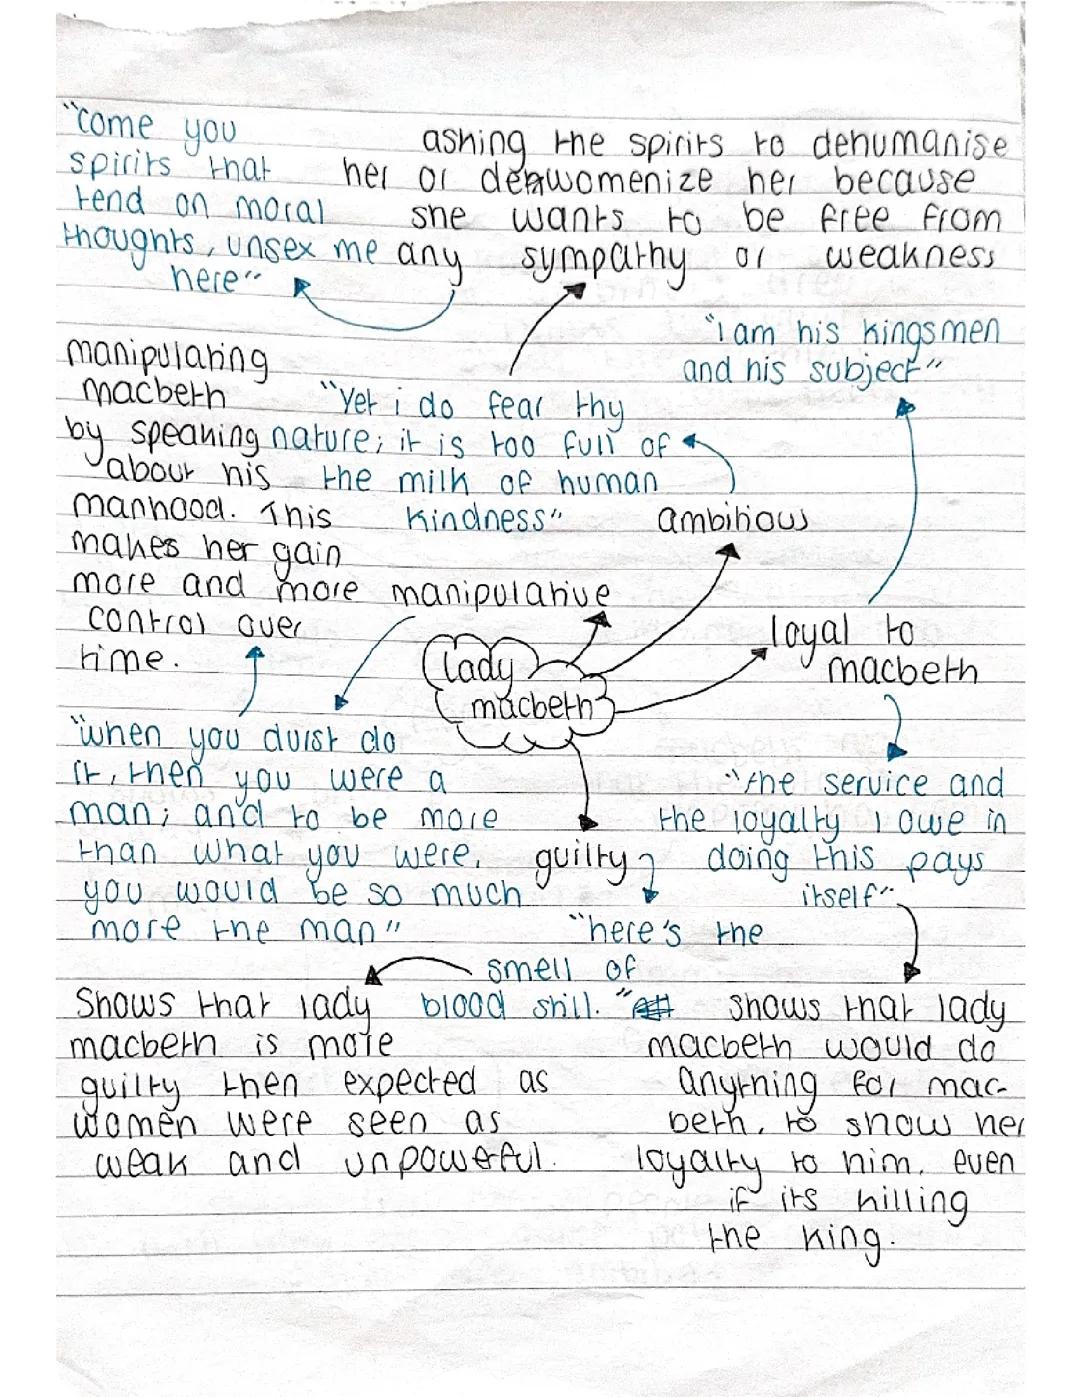 "come you
spirits that
tend on moral
thoughts, unsex me
here"
asking the spirits to dehumanise
her or dewomenize her because
she wants to be free from
any sympathy or weakness
"i am his kingsmen
and his subject"
manipulating
macbeth
by speaking
about his
manhood. This
makes her gain
more and more
control over
time.
"Yet i do fear thy
nature; it is too full of
the milk of human
kindness"
ambitious
manipulative
loyal to
macbeth
lady
macbeth
"when you durst do
it, then you were a
man; and to be more
than what you were,
you would be so much
more the man"
"the service and
the loyalty i owe in
doing this pays
itself"
guilty
"here's the
smell of
blood still."
Shows that lady
macbeth is more
guilty then expected as
women were seen as
weak and unpowerful.
shows that lady
macbeth would do
anything for mac-
beth, to show her
loyalty to him, even
if its killing
the king.